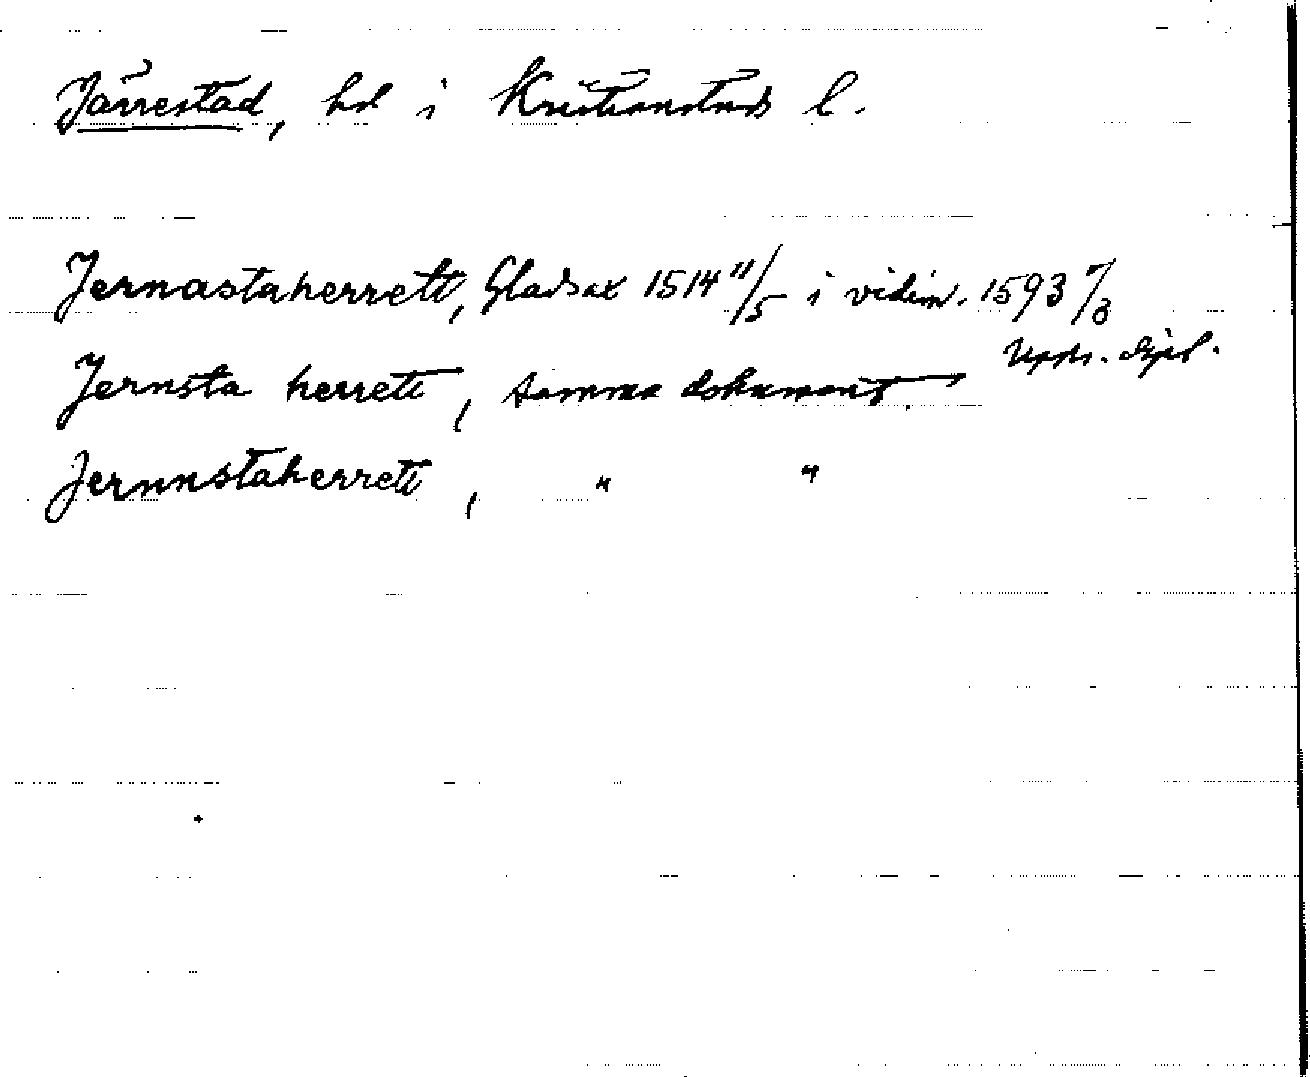 Järrestad, hd i Kristianstads l.
Jernastaherrett, Gladsax 1514 11/5 i vidim. 1593 7/8
Upps. dipl.
Jernsta herrett, samma dokument
Jernnstaherrett, " "